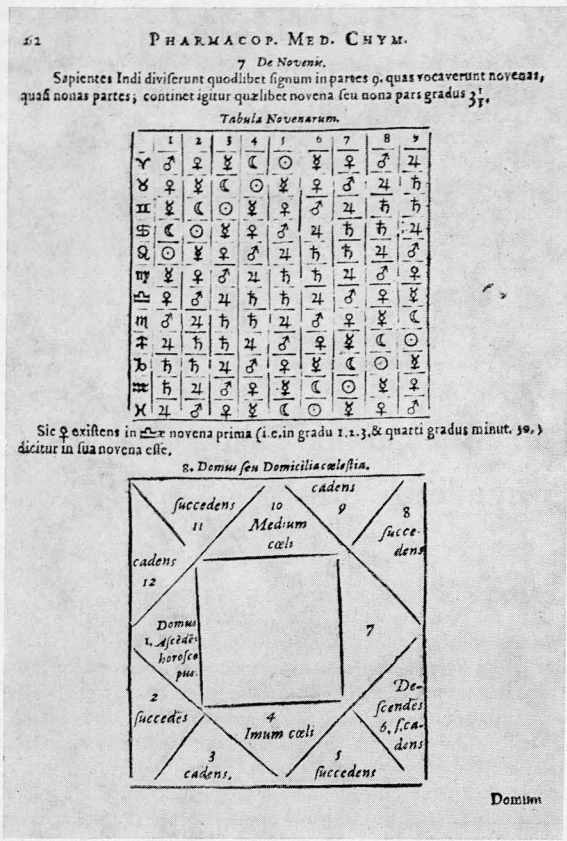 62 PHARMACOP. MED. CHYM.
7 De Novenis.
Sapientes Indi diviserunt quodlibet signum in partes 9. quas vocaverunt novenas,
quasi nonas partes; continet igitur quælibet novena seu nona pars gradus 3 1/3.
Tabula Novenarum.
1 2 3 4 5 6 7 8 9
♈ ♂ ♀ ☿ ☾ ☉ ☿ ♀ ♂ ♃
♉ ♀ ☿ ☾ ☉ ☿ ♀ ♂ ♃ ♄
♊ ☿ ☾ ☉ ☿ ♀ ♂ ♃ ♄ ♄
♋ ☾ ☉ ☿ ♀ ♂ ♃ ♄ ♄ ♃
♌ ☉ ☿ ♀ ♂ ♃ ♄ ♄ ♃ ♂
♍ ☿ ♀ ♂ ♃ ♄ ♄ ♃ ♂ ♀
♎ ♀ ♂ ♃ ♄ ♄ ♃ ♂ ♀ ☿
♏ ♂ ♃ ♄ ♄ ♃ ♂ ♀ ☿ ☾
♐ ♃ ♄ ♄ ♃ ♂ ♀ ☿ ☾ ☉
♑ ♄ ♄ ♃ ♂ ♀ ☿ ☾ ☉ ☿
♒ ♄ ♃ ♂ ♀ ☿ ☾ ☉ ☿ ♀
♓ ♃ ♂ ♀ ☿ ☾ ☉ ☿ ♀ ♂
Sic ♀ existens in ♎æ novena prima (i.e. in gradu 1.2.3. & quarti gradus minut. 30.)
dicitur in sua novena esse.
8. Domus seu Domicilia cœlestia.
succedens
11
10
Medium
cœli
cadens
9
8
succe-
dens
cadens
12
Domus
1. Ascēdēs
horosco
pus.
7
2
succedēs
4
Imum cœli
De-
scendēs
6. s.ca-
dens
3
cadens.
5
succedens
Domum